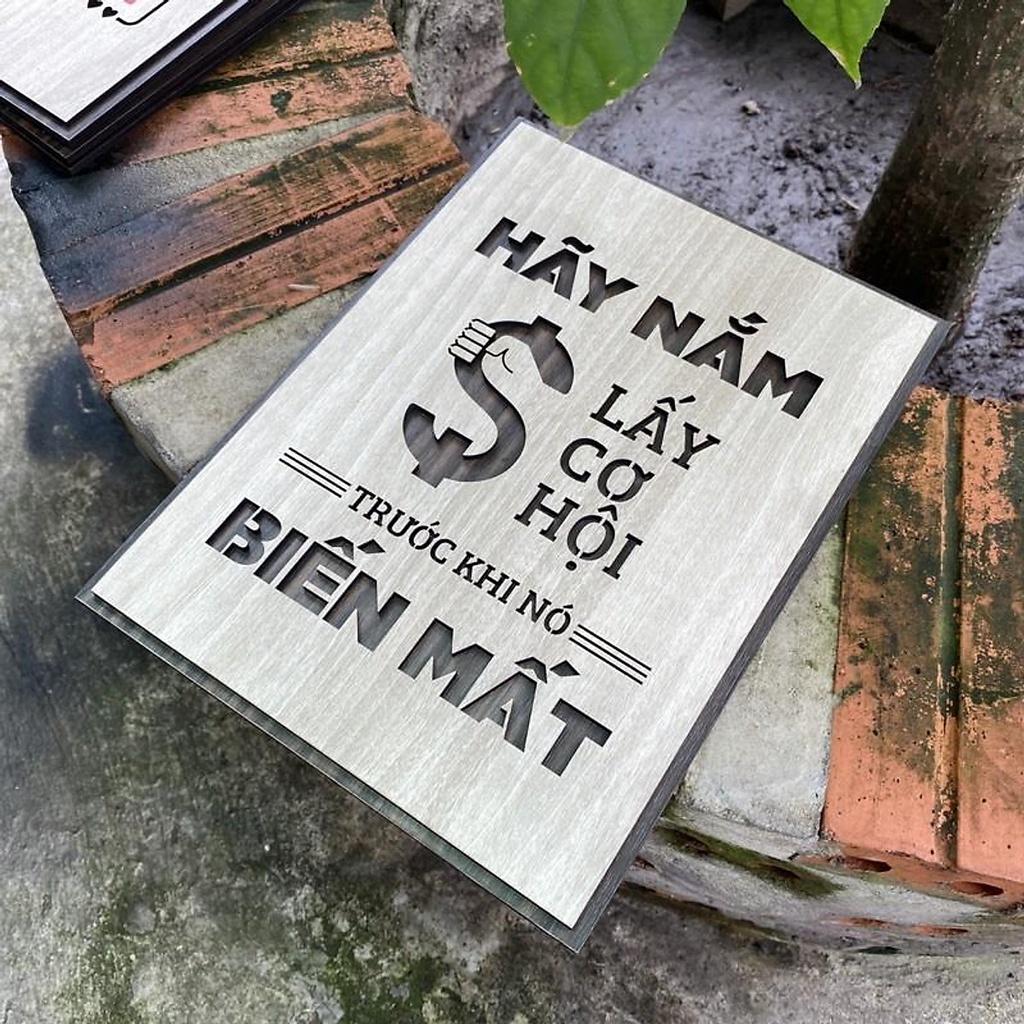 HÃY NẮM
LẤY
CƠ
HỘI
TRƯỚC KHI NÓ
BIẾN MẤT